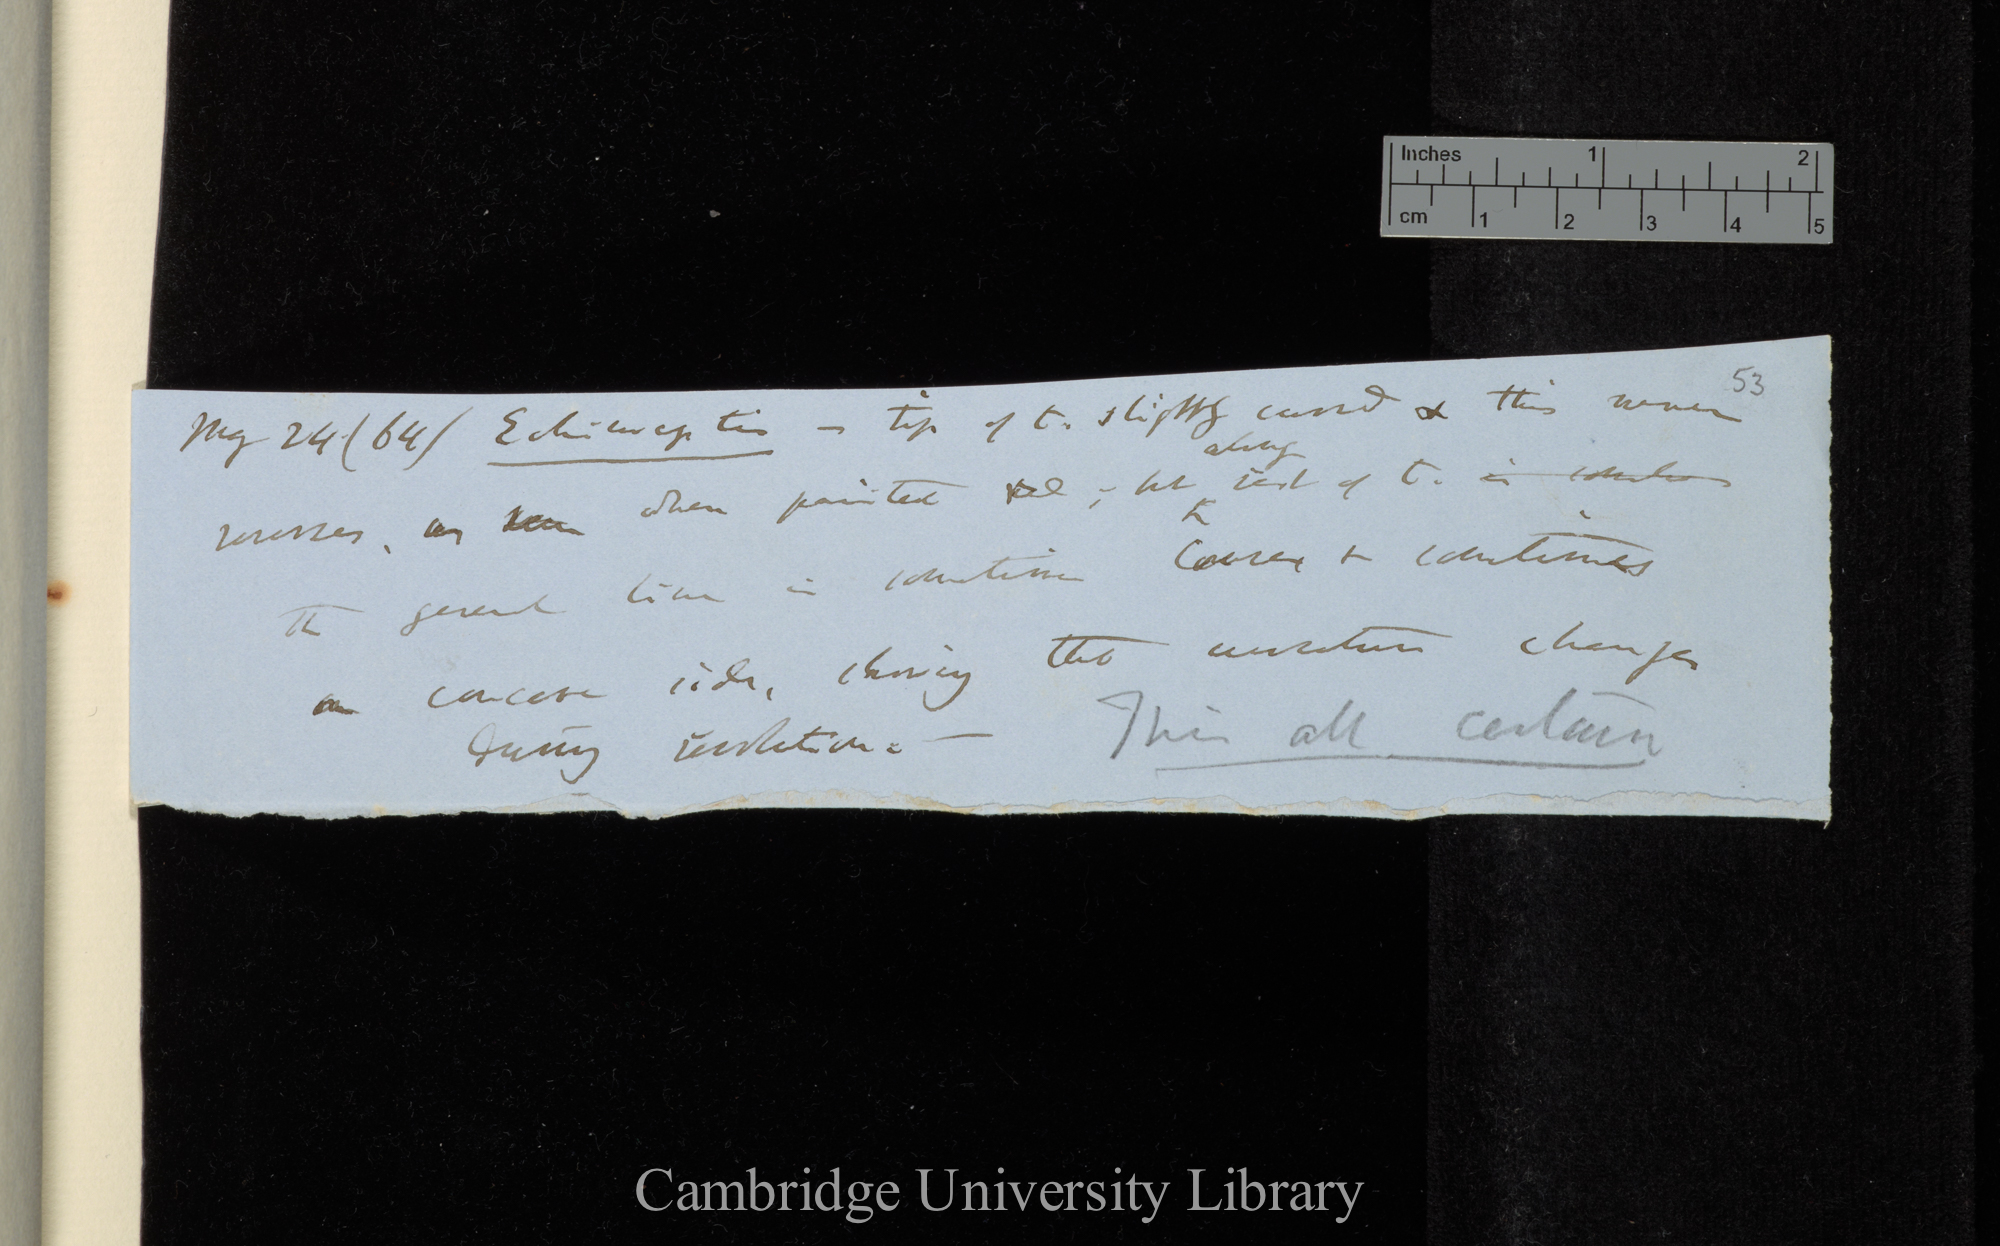 Inches 1 2
cm 1 2 3 4 5
53
May 24 (64) Echinocystis — tip of t. slightly curved & this never
along
reverses, as when painted ; but rest of t. is sometimes
the general line is sometimes convex & sometimes
on concave side, showing that curvature changes
during revolution. —
This all certain
Cambridge University Library